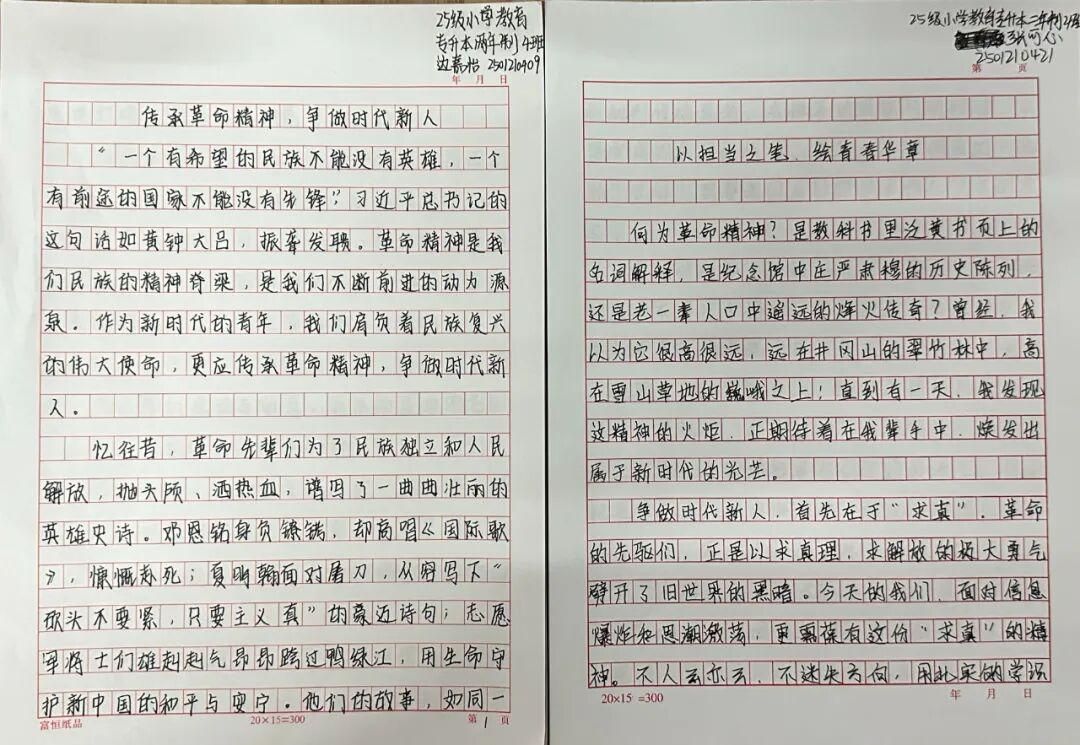 25级小学教育
专升本两年制4班
边嘉怡 2501210409
年 月 日
传承革命精神，争做时代新人
“一个有希望的民族不能没有英雄，一个
有前途的国家不能没有先锋”习近平总书记的
这句话如黄钟大吕，振聋发聩。革命精神是我
们民族的精神脊梁，是我们不断前进的动力源
泉。作为新时代的青年，我们肩负着民族复兴
的伟大使命，更应传承革命精神，争做时代新
人。
忆往昔，革命先辈们为了民族独立和人民
解放，抛头颅、洒热血，谱写了一曲曲壮丽的
英雄史诗。邓恩铭身负镣铐，却高唱《国际歌
》，慷慨赴死；夏明翰面对屠刀，从容写下“
砍头不要紧，只要主义真”的豪迈诗句；志愿
军将士们雄赳赳气昂昂跨过鸭绿江，用生命守
护新中国的和平与安宁。他们的故事，如同一
富恒纸品
20×15=300
第 1 页
25级小学教育专升本二年制4班
张可心
2501210421
第 页
以担当之笔、绘青春华章
何为革命精神？是教科书里泛黄书页上的
名词解释，是纪念馆中庄严肃穆的历史陈列，
还是老一辈人口中遥远的烽火传奇？曾经，我
以为它很高很远，远在井冈山的翠竹林中，高
在雪山草地的巍峨之上；直到有一天，我发现
这精神的火炬，正期待着在我辈手中，焕发出
属于新时代的光芒。
争做时代新人，首先在于“求真”。革命
的先驱们，正是以求真理，求解放的极大勇气
劈开了旧世界的黑暗。今天的我们，面对信息
爆炸和思潮激荡，更需葆有这份“求真”的精
神。不人云亦云，不迷失方向，用扎实的学识
20×15 =300
年 月 日